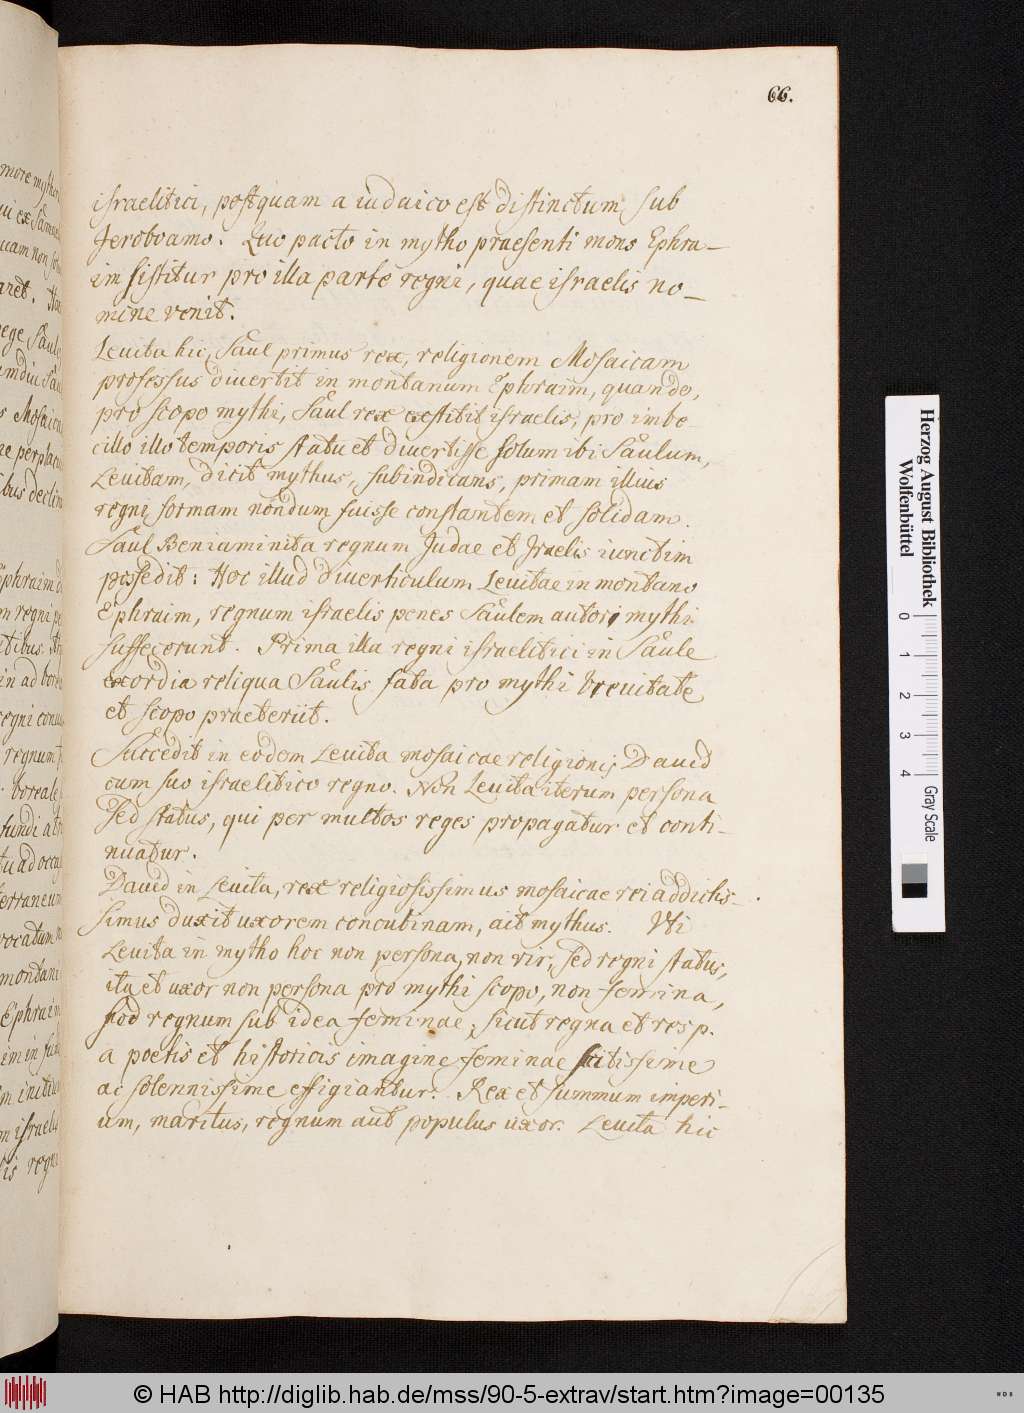 66.
israelitici, postquam a iudaico est distinctum sub
Jeroboamo. Quo pacto in mytho praesenti mons Ephra-
im sistitur pro illa parte regni, quae israelis no-
mine venit.
Leuita hic, Saul primus rex, religionem Mosaicam
professus diuertit in montanum Ephraim, quando,
pro scopo mythi, Saul rex exstitit israelis, pro imbe-
cillo illo temporis statu et diuertisse solum ibi Saulum,
Leuitam, dicit mythus, subindicans, primam illius
regni formam nondum fuisse constantem et solidam.
Saul Beniaminita regnum Judae et Israelis iunctim
possedit: Hoc illud diuerticulum Leuitae in montano
Ephraim, regnum israelis penes Saulem autori mythi
suffecerunt. Prima illa regni israelitici in Saule
exordia reliqua Saulis fata pro mythi breuitate
et scopo praeteriit.
Succedit in eodem Leuita mosaicae religionis Dauid
cum suo israelitico regno. Non Leuita iterum persona
sed status, qui per multos reges propagatur et conti-
nuatur.
Dauid in Leuita, rex religiosissimus mosaicae rei addictis-
simus duxit uxorem concubinam, ait mythus. Vti
Leuita in mytho hoc non persona, non vir, sed regni status,
ita et uxor non persona pro mythi scopo, non femina,
sed regnum sub idea feminae; sicut regna et resp.
a poetis et historicis imagine feminae scitissime
ac solennissime effigiantur. Rex et summum imperi-
um, maritus, regnum aut populus uxor. Leuita hic
Herzog August Bibliothek
Wolfenbüttel
0 1 2 3 4
Gray Scale
© HAB http://diglib.hab.de/mss/90-5-extrav/start.htm?image=00135